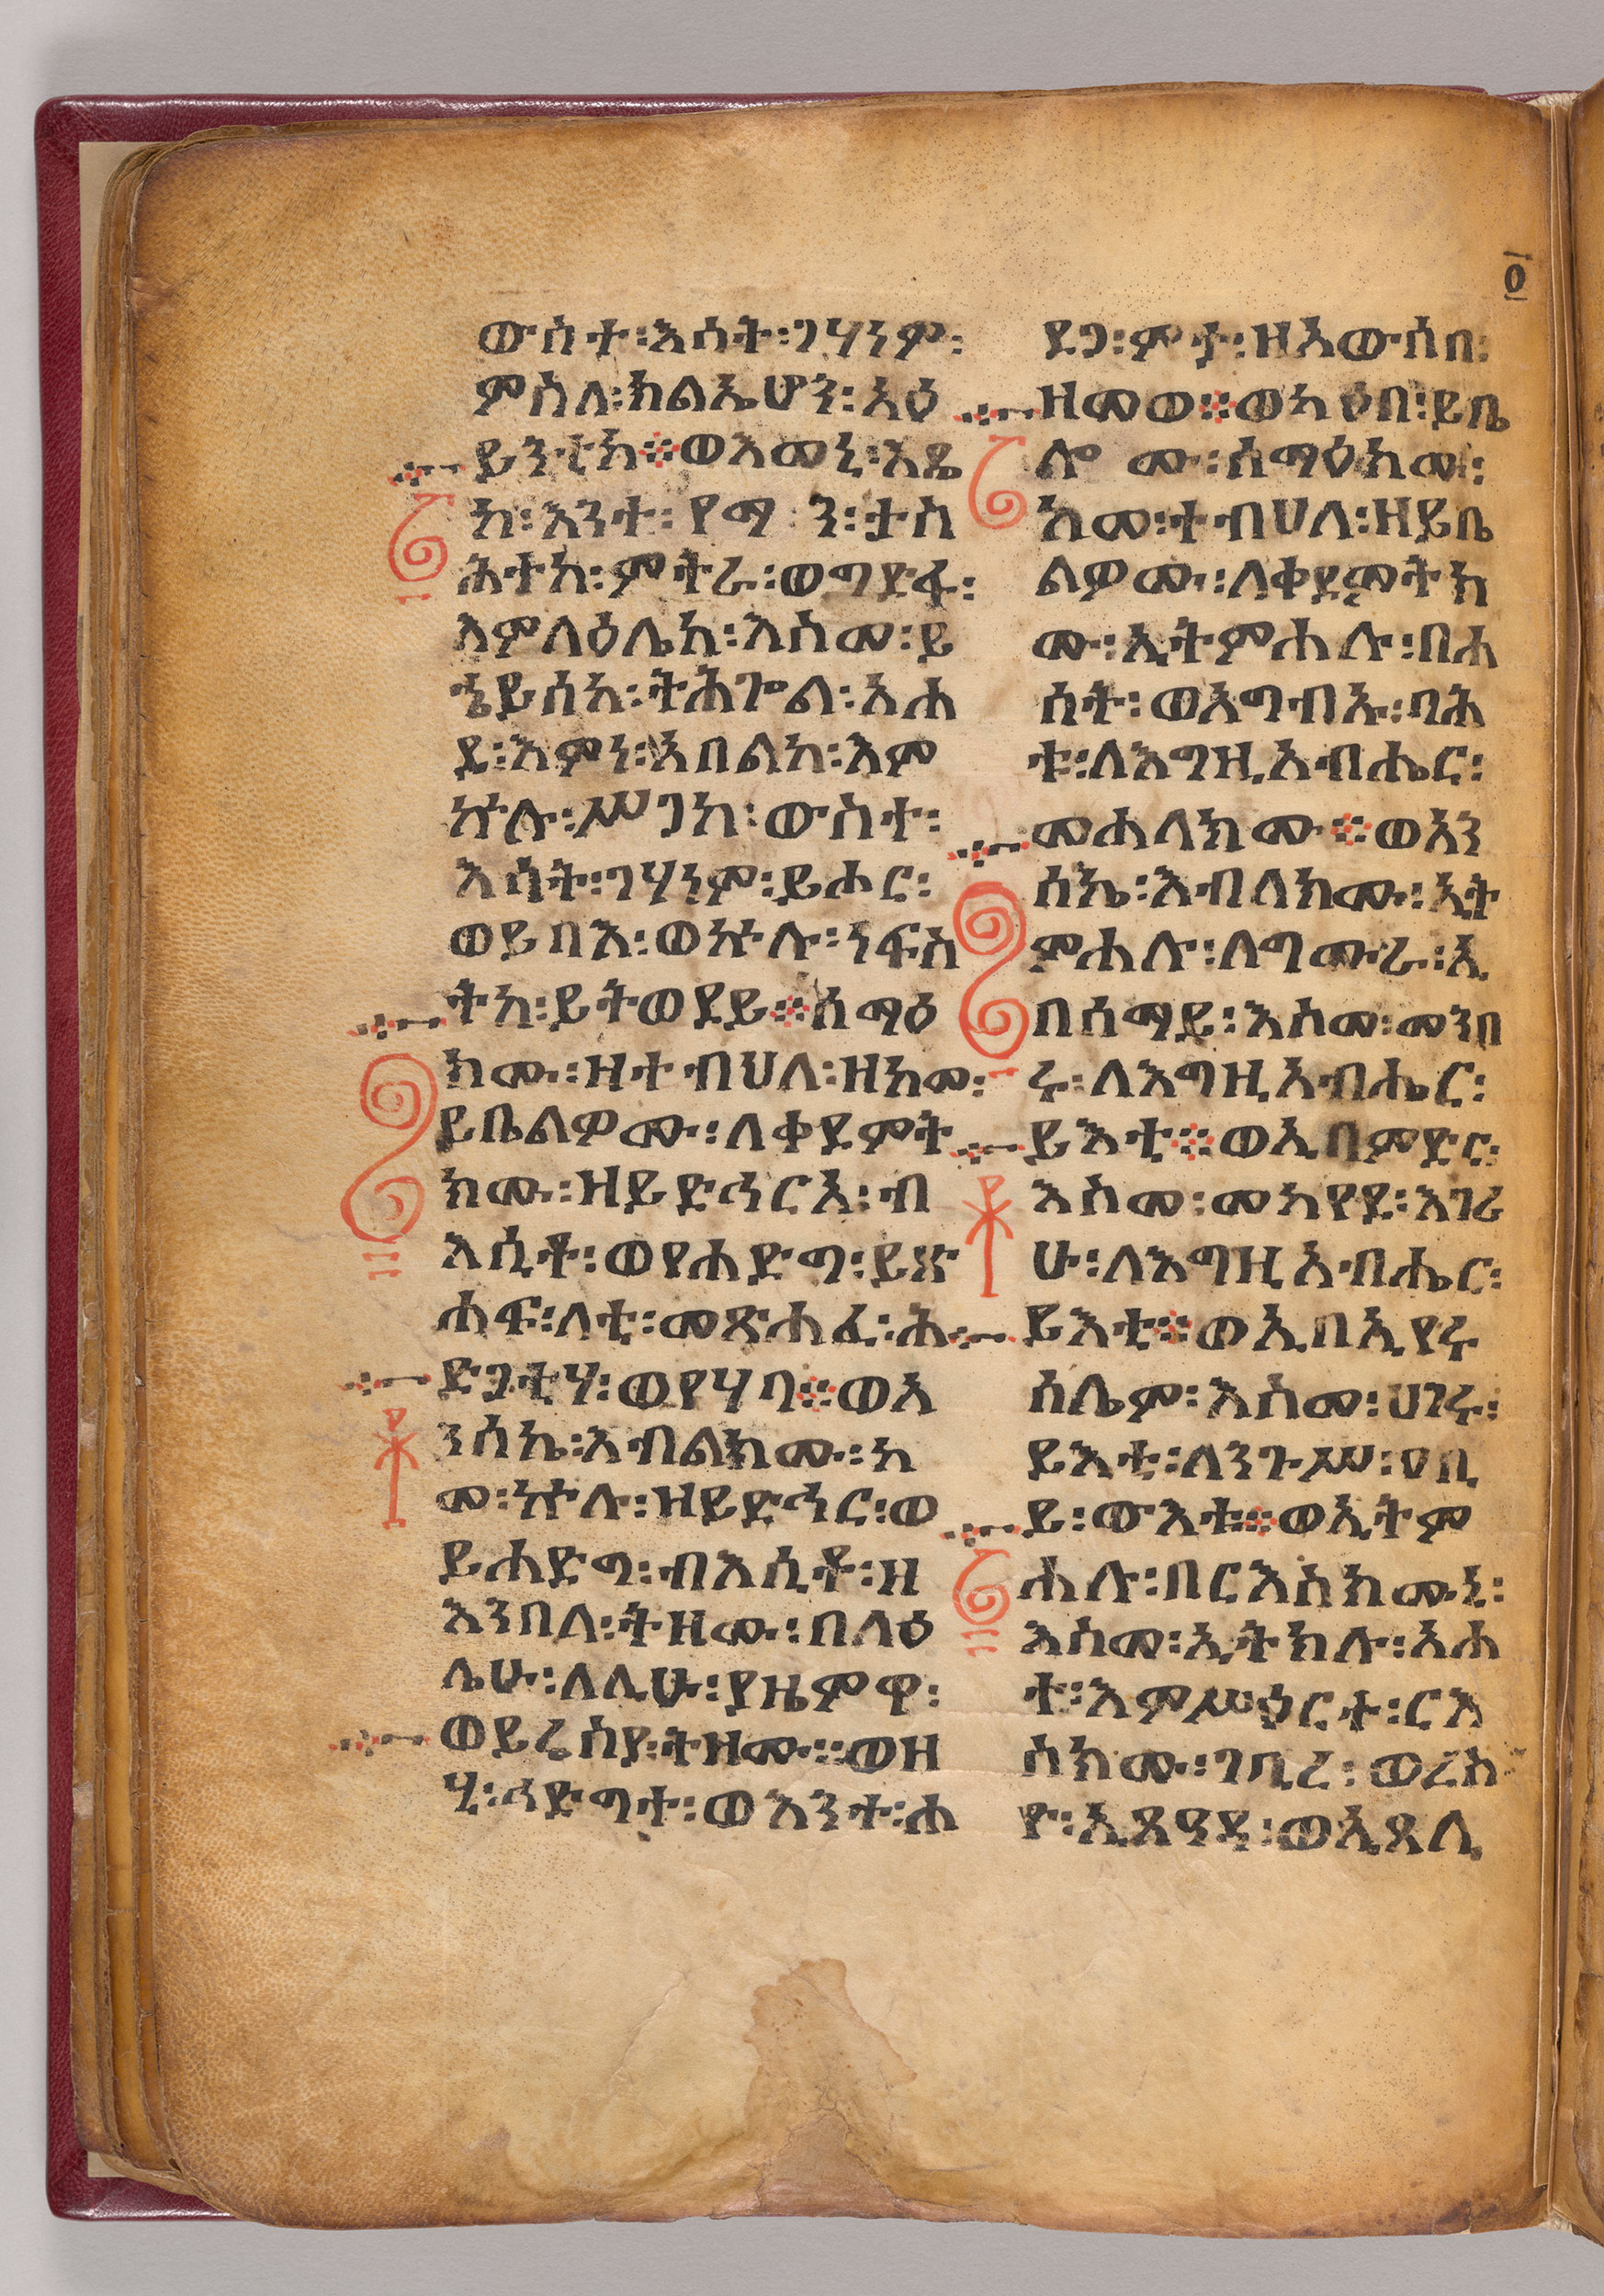 ውስተ፡እሳት፡ገሃነም፡
ምስለ፡ክልኤሆን፡አዕ
ይንቲከ፨ወእመኒ፡እዴ
ከ፡እንተ፡የማን፡ታስ
ሕተከ፡ምትራ፡ወግድፋ፡
እምላዕሌከ፡እስመ፡ይ
ኄይሰከ፡ትሕጐል፡አሐ
ዱ፡እምነ፡አባልከ፡እም
ኵሉ፡ሥጋከ፡ውስተ፡
እሳት፡ገሃነም፡ይሑር፡
ወይባእ፡ወኵሉ፡ነፍስ
ትከ፡ይትወደይ፨ሰማዕ
ክሙ፡ዘተብህለ፡ዘከመ፡
ይቤልዎሙ፡ለቀደምት
ክሙ፡ዘይድኅር፡ብ
እሲቶ፡ወየሐድግ፡ይጽ
ሐፍ፡ላቲ፡መጽሐፈ፡ሕ
ድጋቲሃ፡ወየሃባ፨ወአ
ንሰኬ፡እብልክሙ፡ከ
መ፡ኵሉ፡ዘይድኅር፡ወ
ይሐድግ፡ብእሲቶ፡ዘ
እንበለ፡ትዘሙ፡በላዕ
ሌሁ፡ለሊሁ፡ያዜምዋ፡
ወይሬስያ፡ትዘሙ፨ወዘ
ሂ፡ኅድግተ፡ወእንተ፡ሐ
ዐ
ደጋ፡ምታ፡ዘአውሰበ፡
ዘመወ፨ወካዕበ፡ይቤ
ሎሙ፡ሰማዕክሙ፡
ከመ፡ተብህለ፡ዘይቤ
ልዎሙ፡ለቀደምትክ
ሙ፡ኢትምሐሉ፡በሐ
ሰት፡ወአግብኡ፡ባሕ
ቱ፡ለእግዚአብሔር፡
መሐላክሙ፨ወአን
ሰኬ፡እብለክሙ፡ኢት
ምሐሉ፡ለግሙራ፡ኢ
በሰማይ፡እስመ፡መንበ
ሩ፡ለእግዚአብሔር፡
ይእቲ፨ወኢበምድር፡
እስመ፡መከየደ፡እገሪ
ሁ፡ለእግዚአብሔር፡
ይእቲ፨ወኢበኢየሩ
ሳሌም፡እስመ፡ሀገሩ፡
ይእቲ፡ለንጉሥ፡ዐቢ
ይ፡ውእቱ፨ወኢትም
ሐሉ፡በርእስክሙኒ፡
እስመ፡ኢትክሉ፡አሐ
ተ፡እምሥዕርተ፡ርእ
ስክሙ፡ገቢረ፡ወረስ
ዮ፡ኢጸዓዳ፡ወኢጸሊ